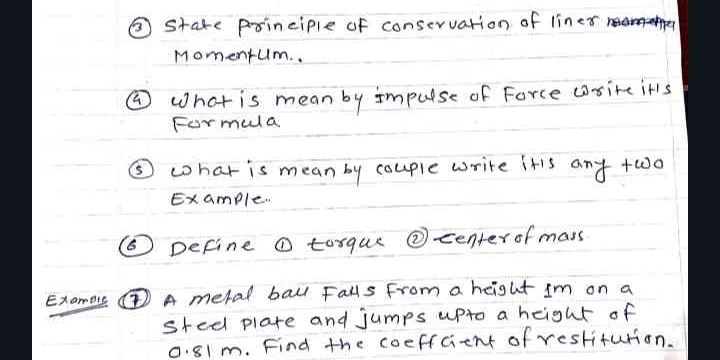 ③ State principle of conservation of liner
Momentum..
④ what is mean by impulse of Force write it's
Formula
⑤ what is mean by couple write it's any two
Example..
⑥ Define ① torque ② center of mass
Example ⑦ A metal ball Falls From a height 1m on a
steel plate and jumps upto a height of
0.81 m. Find the coefficient of restitution.